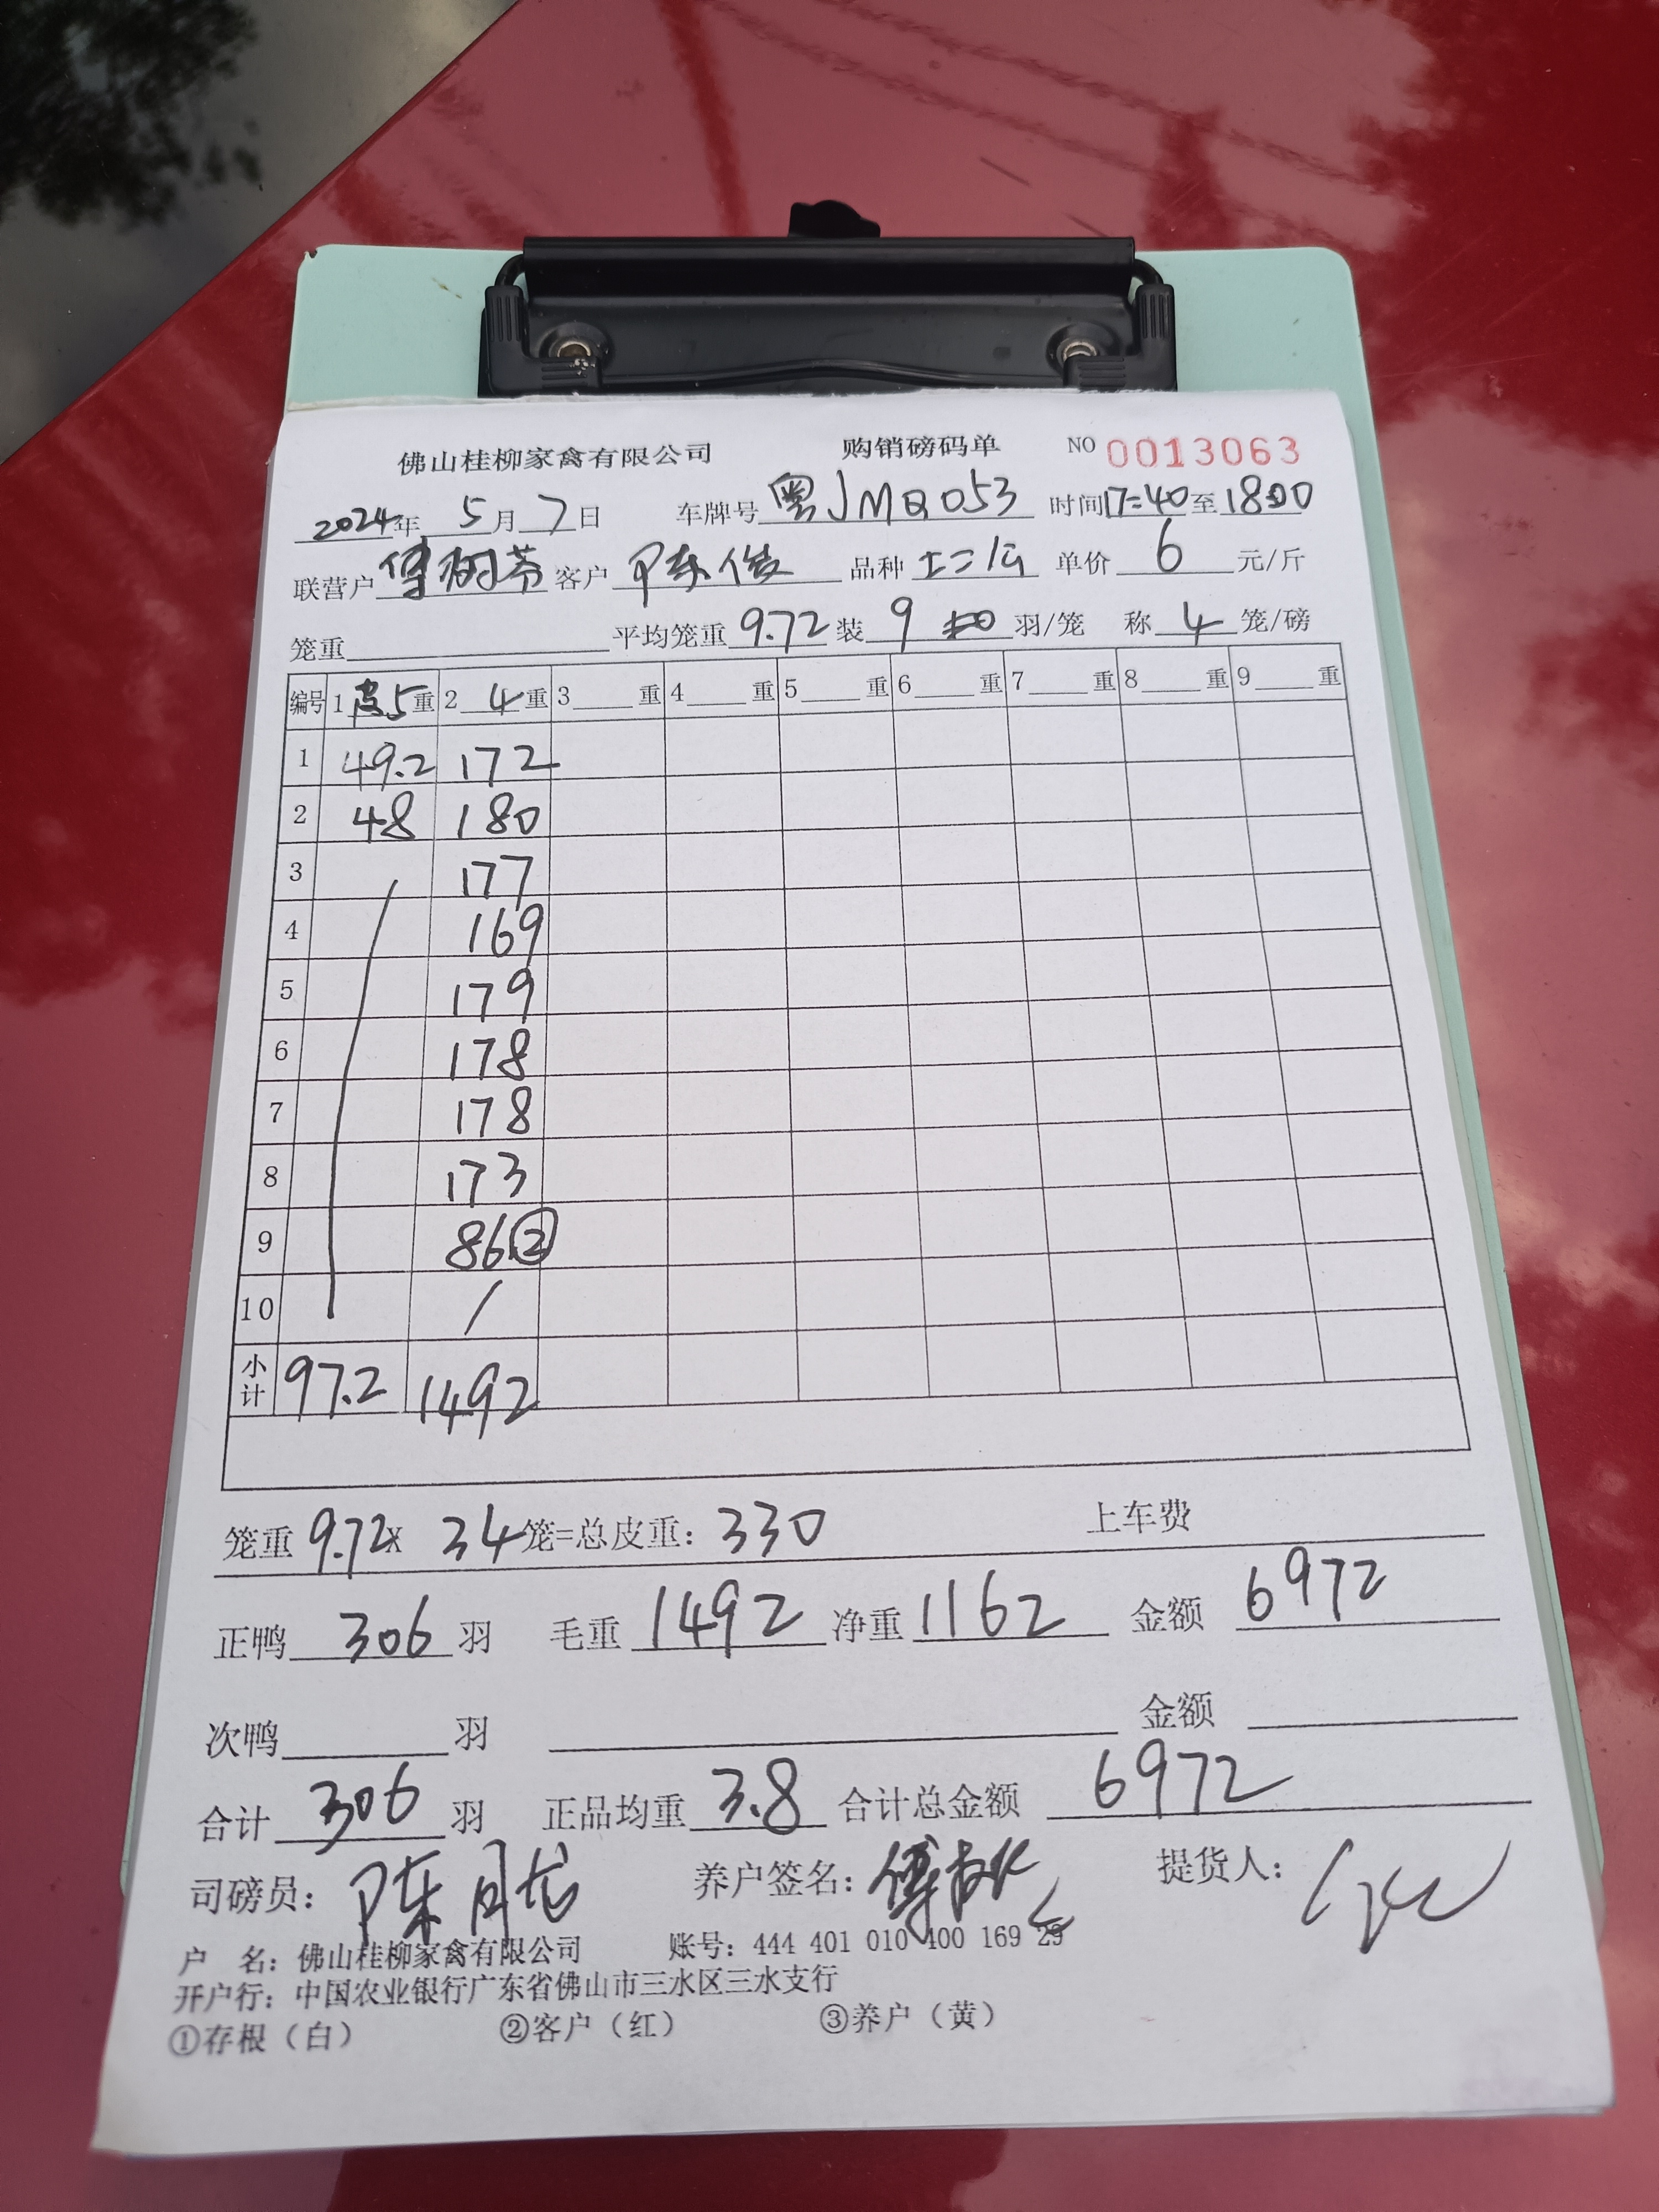 佛山桂柳家禽有限公司 购销磅码单 NO 0013063
2024年 5月 7日 车牌号 粤JMQ053 时间 17:40 至 18:00
联营户 傅树芬 客户 陈俊 品种 土二公 单价 6 元/斤
笼重 平均笼重 9.72 装 9 羽/笼 称 4 笼/磅
编号 1 皮5 重 2 4 重 3 重 4 重 5 重 6 重 7 重 8 重 9 重
1 49.2 172
2 48 180
3 177
4 169
5 179
6 178
7 178
8 173
9 86 ②
10 /
小计 97.2 1492
笼重 9.72 x 34 笼=总皮重: 330 上车费
正鸭 306 羽 毛重 1492 净重 1162 金额 6972
次鸭 羽 金额
合计 306 羽 正品均重 3.8 合计总金额 6972
司磅员: 陈月龙 养户签名: 傅 提货人:
户 名: 佛山桂柳家禽有限公司 账号: 444 401 010 400 169 29
开户行: 中国农业银行广东省佛山市三水区三水支行
①存根(白) ②客户(红) ③养户(黄)